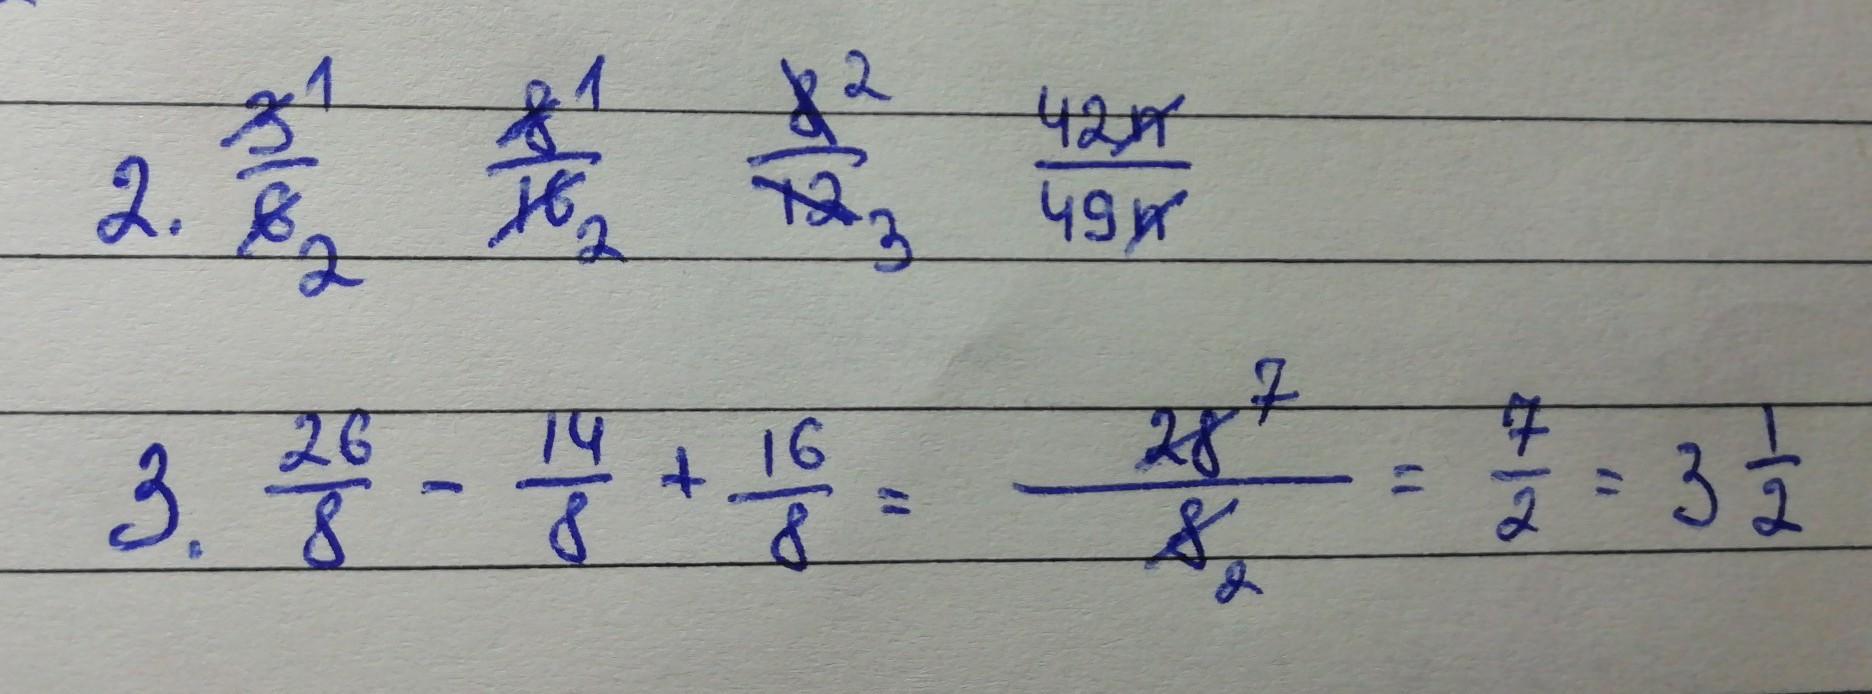 2. 3/6 1/2 8/16 1/2 8/12 2/3 42n/49n
3. 26/8 - 14/8 + 16/8 = 28/8 7/2 = 7/2 = 3 1/2